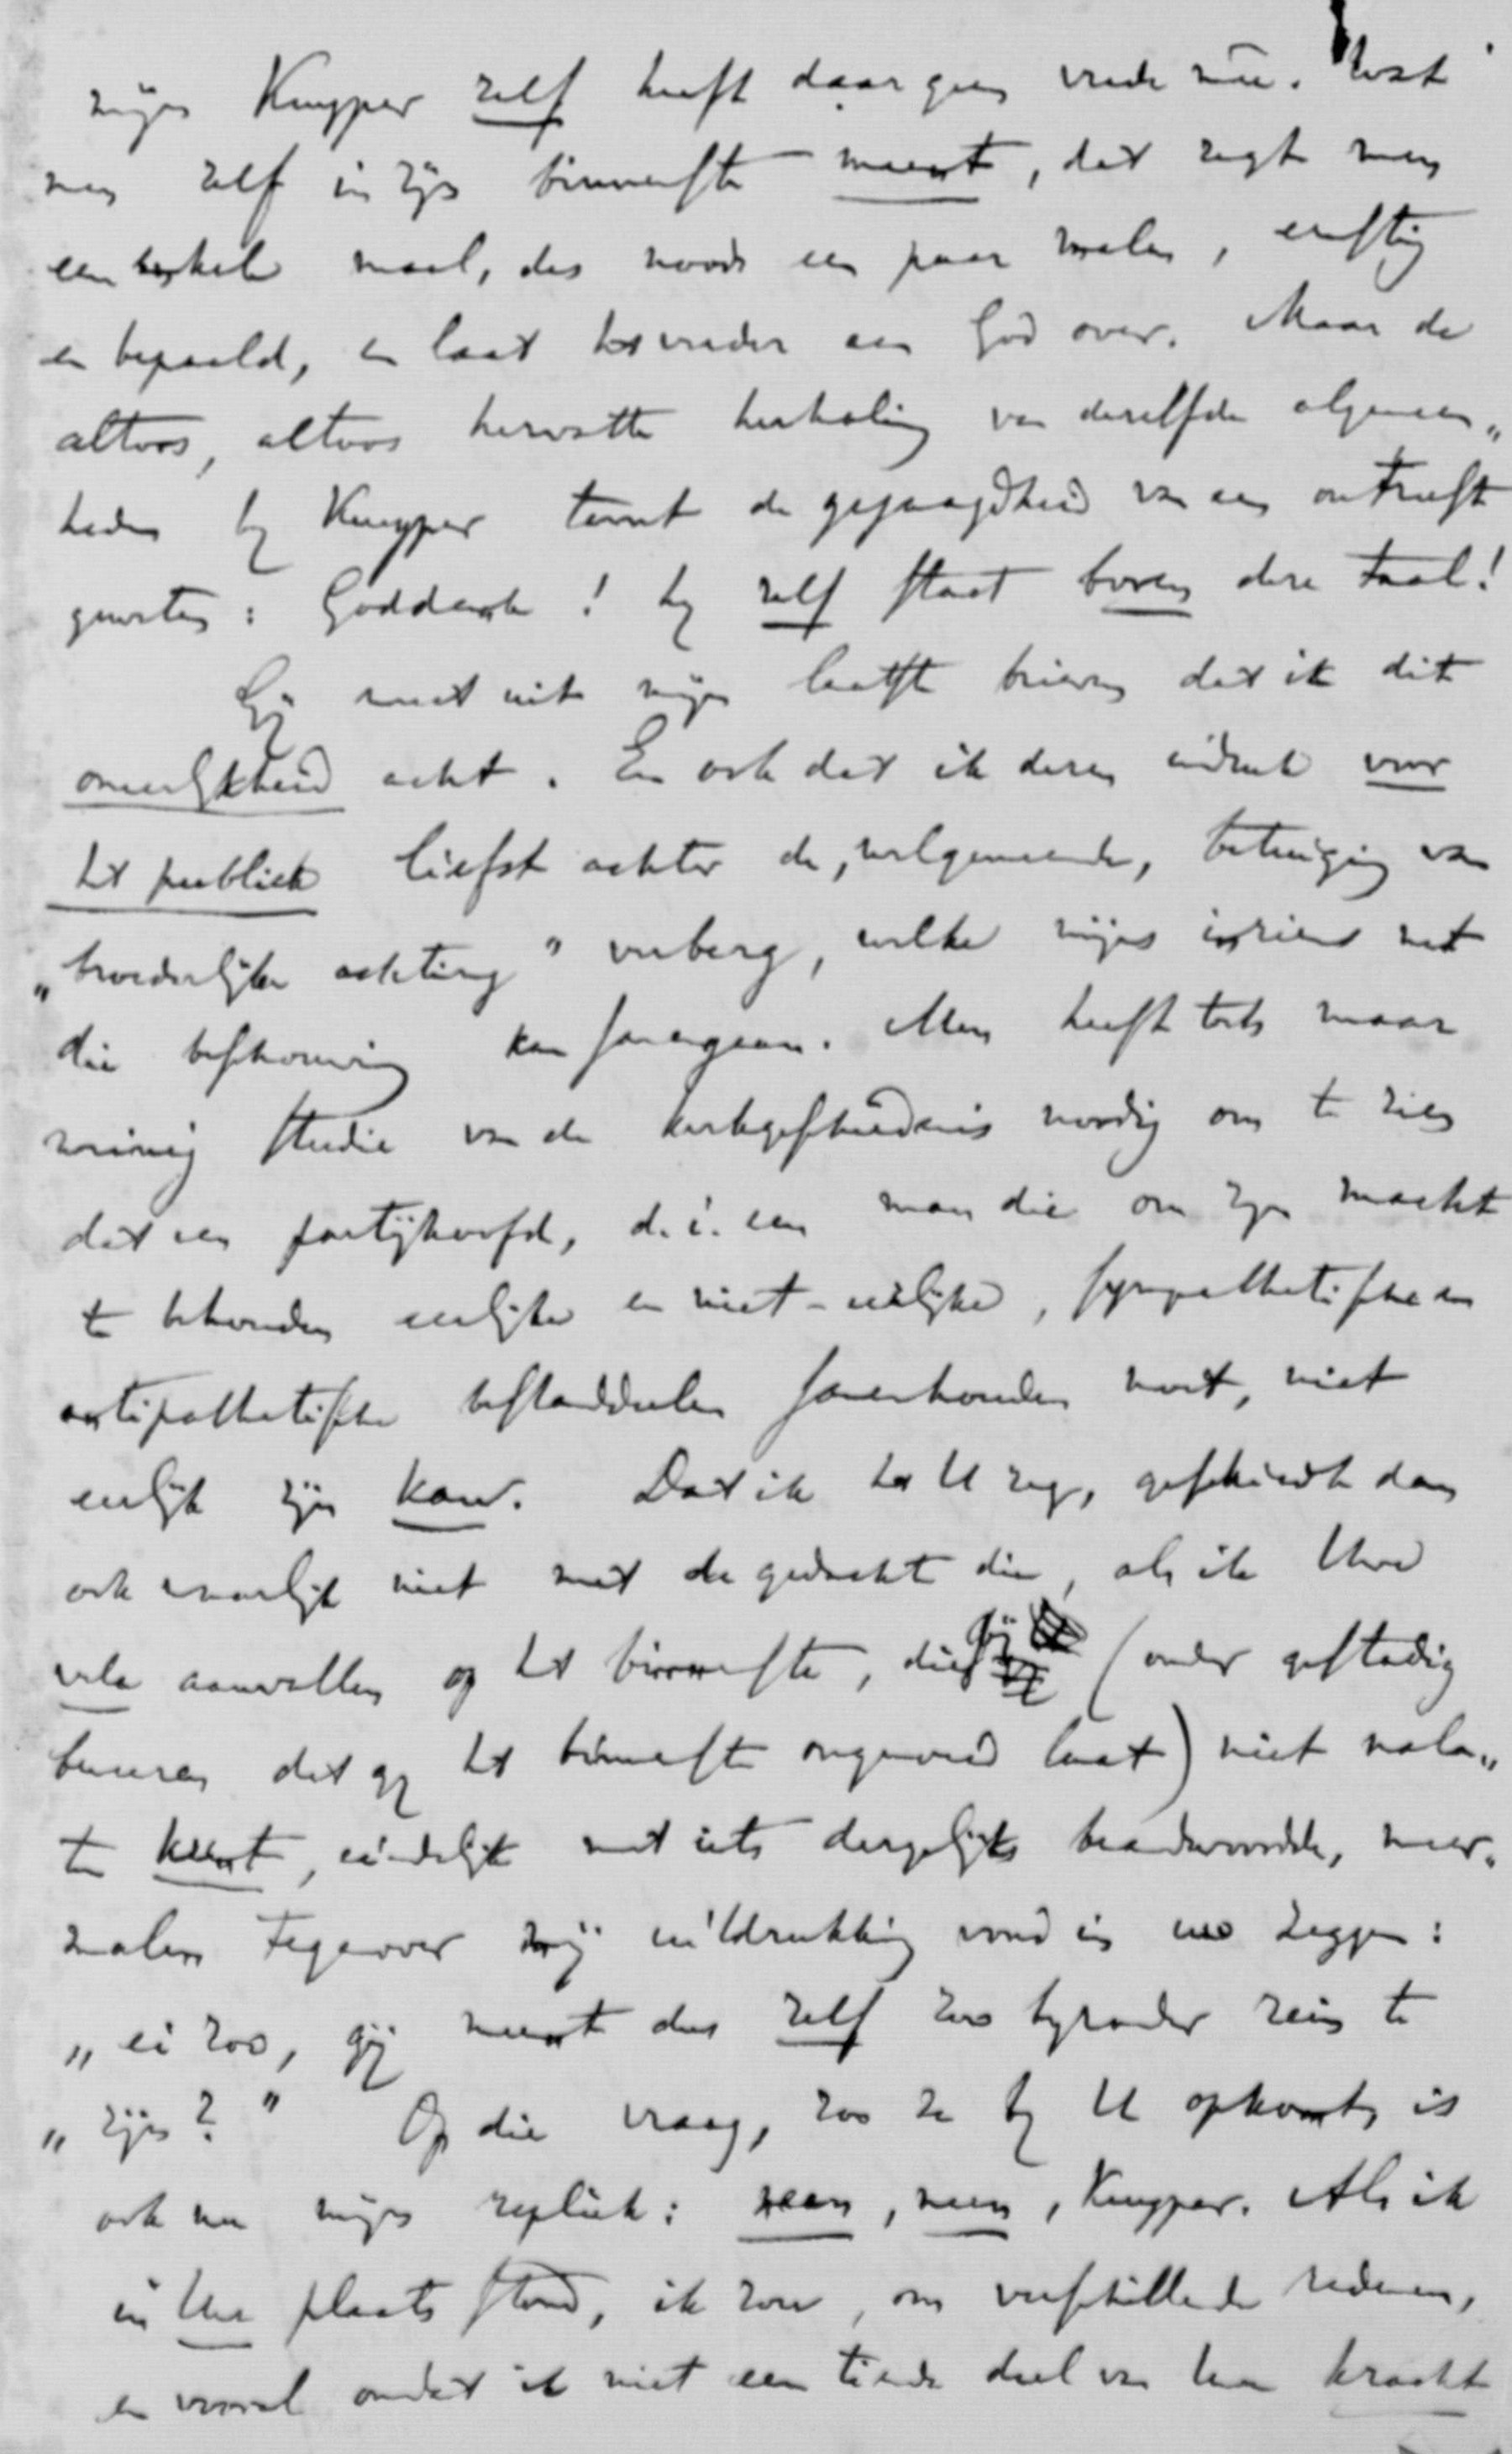 mijn Kuyper zelf heeft daar geen vrede mee. Wat
men zelf in zijn binnenste meent, dat zegt men
een enkele maal, des noods een paar malen, ernstig
en bepaald, en laat het verder aan God over. Maar de
altoos, altoos hervatte herhaling van dezelfde algemeen„
heden by Kuyper toont de gejaagdheid van een ontrust
geweten: Goddank! hy zelf staat boven deze taal!
Gij weet uit mijn laatste brieven dat ik dit
oneerlykheid acht. En ook dat ik dezen indruk voor
het publiek liefst achter de, welgemeende, betuiging van
„broederlijke achting" verberg, welke mijns inziens met
die beschouwing kan samengaan. Men heeft toch maar
weinig studie van de kerkgeschiedenis noodig om te zien
dat een partijhoofd, d.i. een man die om zyn macht
te behouden eerlijke en niet-eerlijke, sympathetische en
antipathetische bestanddeelen samenhouden moet, niet
eerlijk zijn kan. Dat ik het U zeg, geschiedt dan
ook waarlijk niet met de gedachte die, als ik Uwe
vele aanvallen op het binnenste, die gij (onder gestadig
beweren dat gy het binnenste ongemoeid laat) niet nala„
ten kunt, eindelijk met iets dergelijks beantwoordde, meer„
malen tegenover mij uitdrukking vond in uw zeggen:
„ei zoo, gij meent dus zelf zoo byzonder rein te
„zijn?" Op die vraag, zoo ze by U opkomt, is
ook nu mijn repliek: neen, neen, Kuyper. Als ik
in Uw plaats stond, ik zou, om verschillende redenen,
en vooral omdat ik niet een tiende deel van Uw kracht